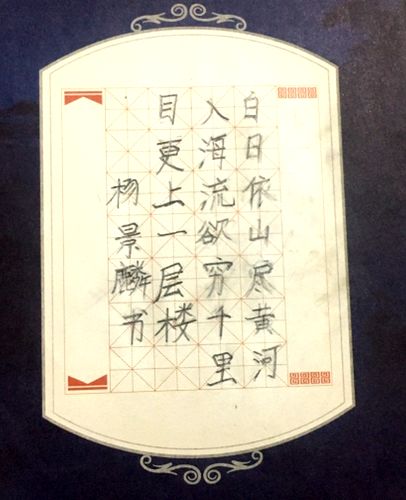 白日依山尽黄河
入海流欲穷千里
目更上一层楼
景麟书